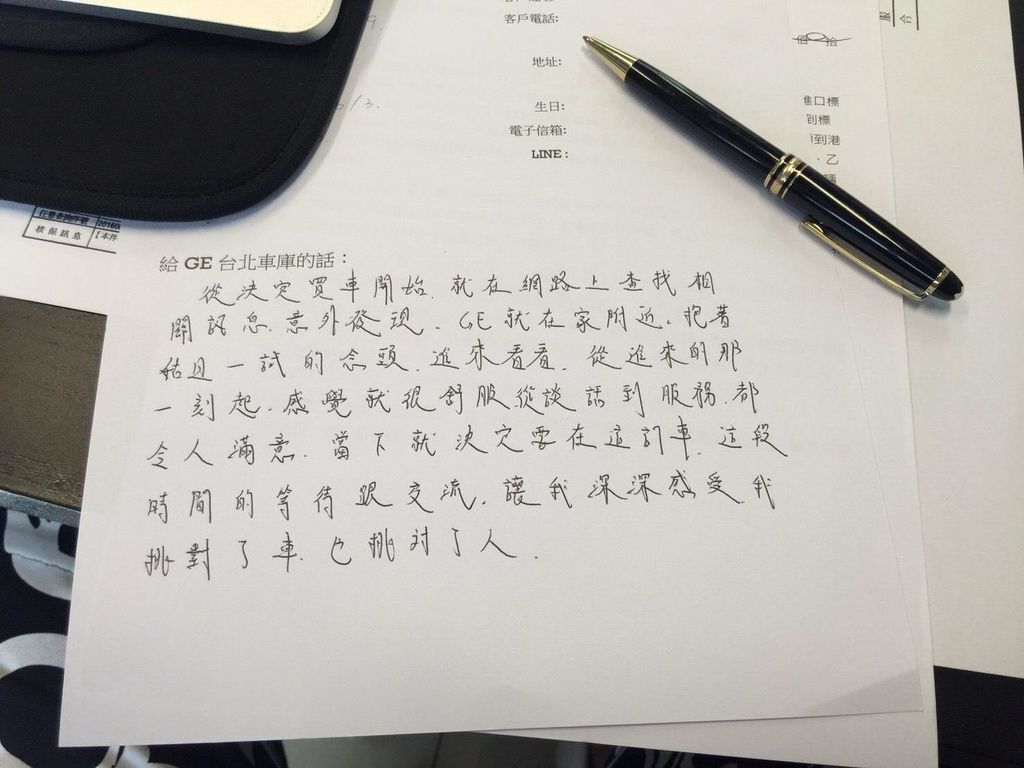 客戶電話:
地址:
生日:
電子信箱:
LINE:
進口標
到標
到港
乙
服
合
核保訊息
給 GE 台北車庫的話：
從決定買車開始. 就在網路上查找相
關訊息. 意外發現. GE 就在家附近. 抱著
姑且一試的念頭. 進來看看. 從進來的那
一刻起. 感覺就很舒服從談話到服務. 都
令人滿意. 當下就決定要在這訂車. 這段
時間的等待跟交流. 讓我深深感受. 我
挑對了車. 也挑对了人.